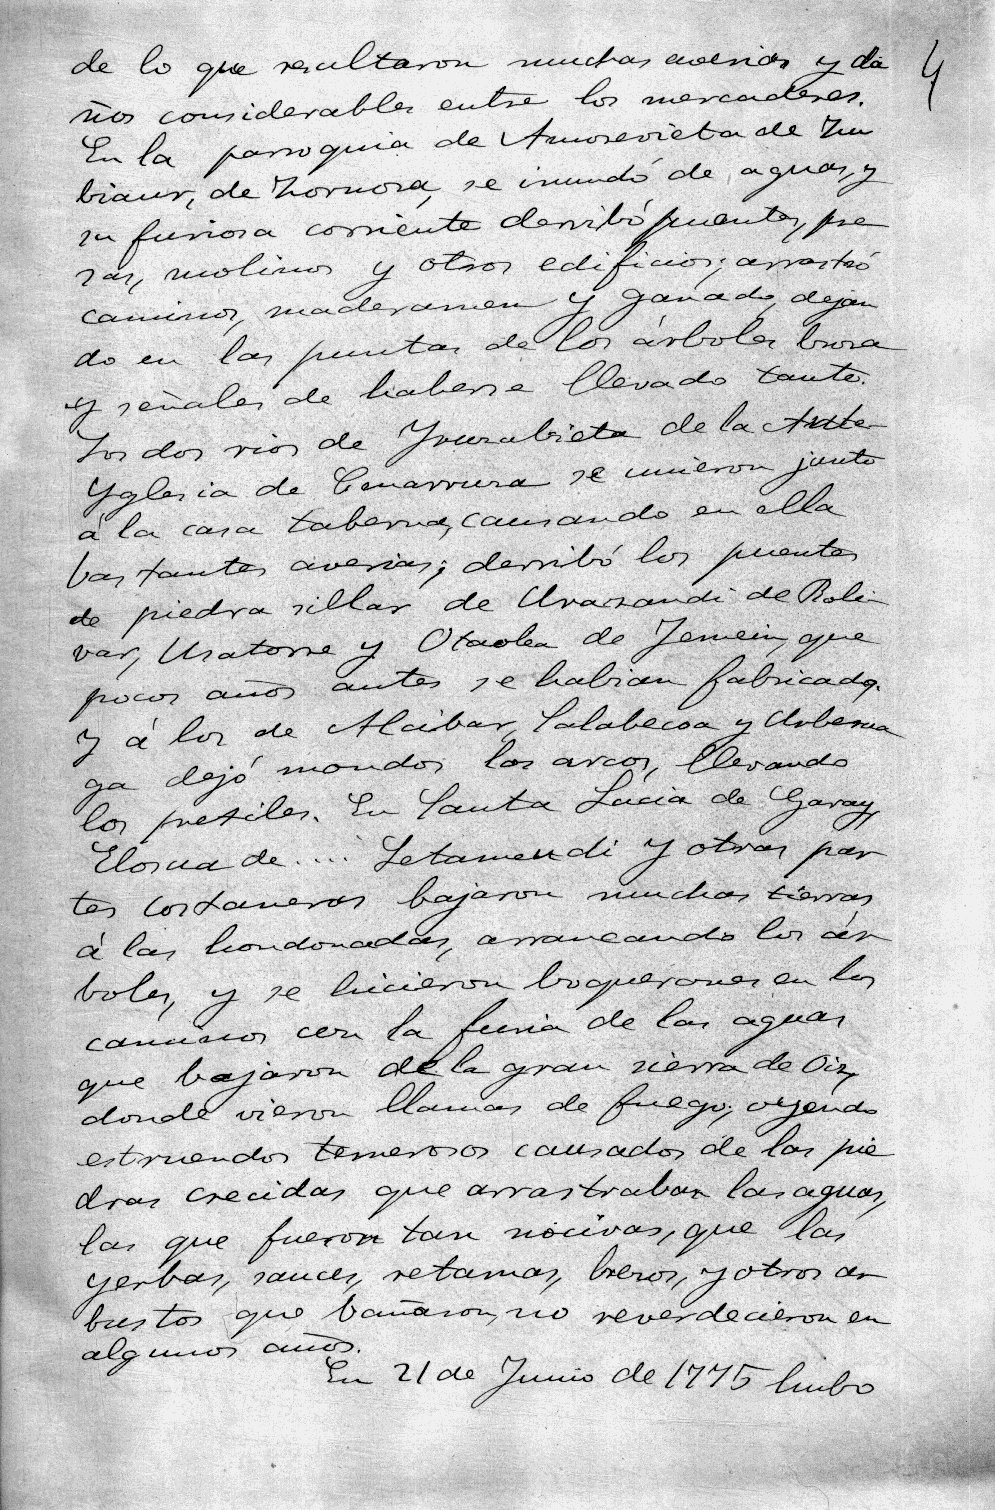 de lo que resultaron muchas averias y da
ños considerables entre los mercaderes.
En la parroquia de Amorevieta de Zu
biaur, de Zornosa, se inundó de aguas, y
su furiosa corriente derribó puentes, pre
sas, molinos y otros edificios; arrastró
caminos, maderamen y ganado, dejan
do en las puntas de los árboles broza
y señales de haberse llevado tanto.
Los dos rios de Yruzubieta de la Ante
Yglesia de Cenarruza se unieron junto
á la casa taberna, causando en ella
bastantes averias; derribó los puentes
de piedra sillar de Urazandi de Bolin
var, Usatorre y Otaolea de Jemein, que
pocos años antes se habian fabricado,
y á los de Alcibar, Salabecoa y Urberua
ga dejó mondos los arcos, llevando
los pretiles. En Santa Lucia de Garay,
Elosua de .... Letamendi y otras par
tes costaneras bajaron muchas tierras
á las hondonadas, arrancando los ár
boles, y se hicieron boquerones en los
caminos con la furia de las aguas
que bajaron de la gran sierra de Oiz,
donde vieron llamas de fuego; oyendo
estruendos temerosos causados de las pie
dras crecidas que arrastraban las aguas,
las que fueron tan nocivas, que las
yerbas, sauces, retamas, brezos, y otros ar
bustos que bañaron, no reverdecieron en
algunos años.
En 21 de Junio de 1775 hubo